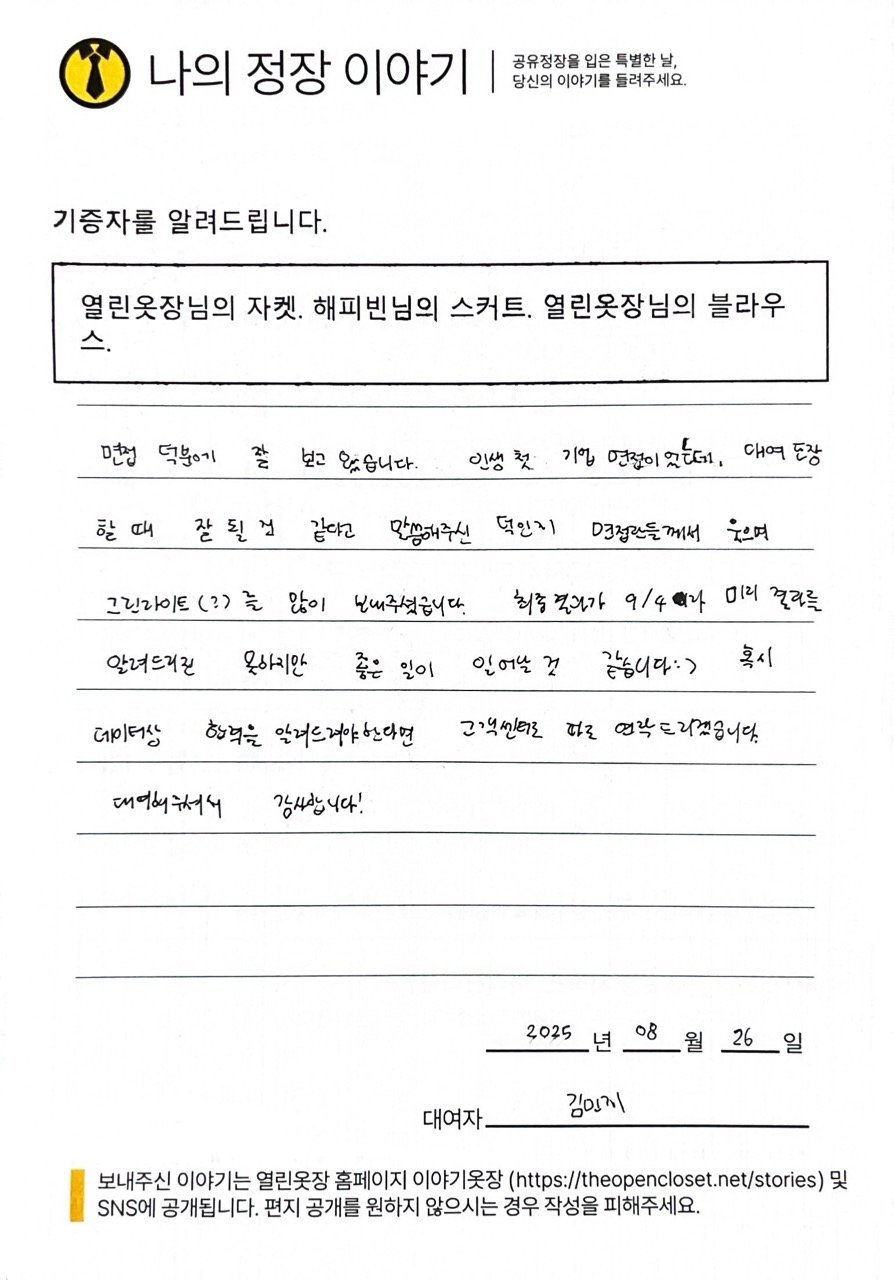 나의 정장 이야기
공유정장을 입은 특별한 날,
당신의 이야기를 들려주세요.
기증자를 알려드립니다.
열린옷장님의 자켓. 해피빈님의 스커트. 열린옷장님의 블라우
스.
면접 덕분에 잘 보고 왔습니다. 인생 첫 기업 면접이었는데, 대여 도장
할 때 잘 될 것 같다고 말씀해주신 덕인지 면접관들께서 웃으며
그린라이트(?)를 많이 보내주셨습니다. 최종결과가 9/4 라 미리 결과를
알려드리진 못하지만 좋은 일이 일어날 것 같습니다:) 혹시
데이터상 합격을 알려드려야한다면 고객센터로 따로 연락드리겠습니다.
대여해주셔서 감사합니다!
2025 년 08 월 26 일
대여자 김민지
보내주신 이야기는 열린옷장 홈페이지 이야기옷장 (https://theopencloset.net/stories) 및
SNS에 공개됩니다. 편지 공개를 원하지 않으시는 경우 작성을 피해주세요.